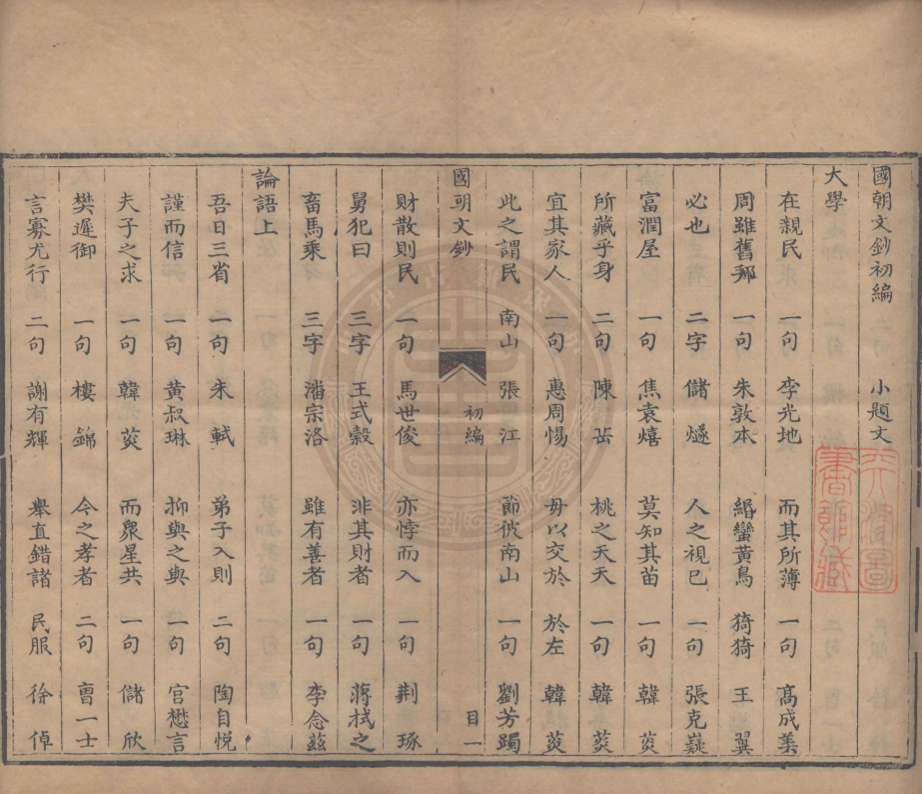 國朝文鈔初編 小題文
大學
在親民 一句 李光地 而其所薄 一句 高成美
周雖舊邦 一句 朱敦本 緡蠻黃鳥 猗猗 王翼
必也 二字 儲㷸 人之視己 一句 張克嶷
富潤屋 一句 焦袁熹 莫知其苗 一句 韓菼
所藏乎身 二句 陳訔 桃之夭夭 一句 韓菼
宜其家人 一句 惠周惕 毋以交於 於左 韓菼
此之謂民 南山 張江 節彼南山 一句 劉芳躅
國朝文鈔 初編 目一
財散則民 一句 馬世俊 亦悖而入 一句 荆琢
舅犯曰 三字 王式穀 非其財者 一句 蔣栻之
畜馬乘 三字 潘宗洛 雖有善者 一句 李念兹
論語上
吾日三省 一句 朱軾 弟子入則 二句 陶自悅
謹而信 一句 黃叔琳 抑與之與 一句 宮懋言
夫子之求 一句 韓菼 而眾星共 一句 儲欣
樊遲御 一句 樓錦 今之孝者 二句 曹一士
言寡尤行 二句 謝有輝 舉直錯諸 民服 徐倬